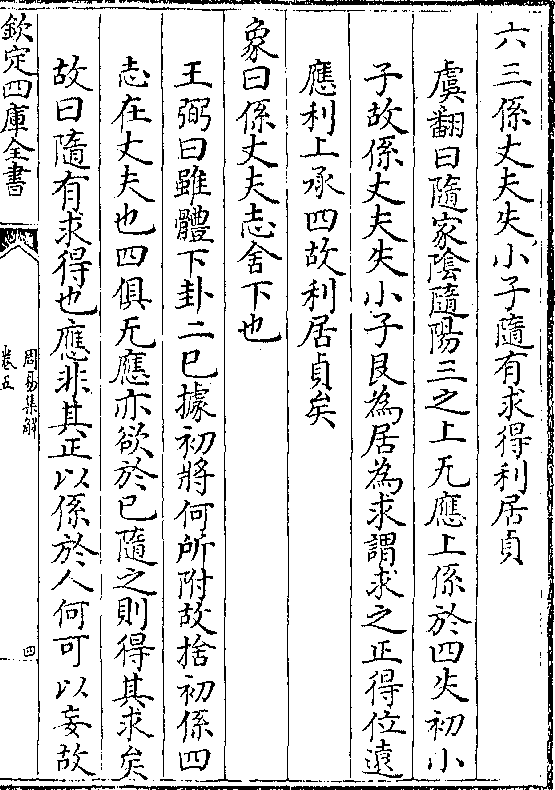 六三係丈夫失小子隨有求得利居貞
虞翻曰隨家陰隨陽三之上无應上係於四失初小
子故係丈夫失小子艮為居為求謂求之正得位遠
應利上承四故利居貞矣
象曰係丈夫志舍下也
王弼曰雖體下卦二已據初將何所附故捨初係四
志在丈夫也四俱无應亦欲於已隨之則得其求矣
故曰隨有求得也應非其正以係於人何可以妄故
欽定四庫全書
周易集解
卷五
四